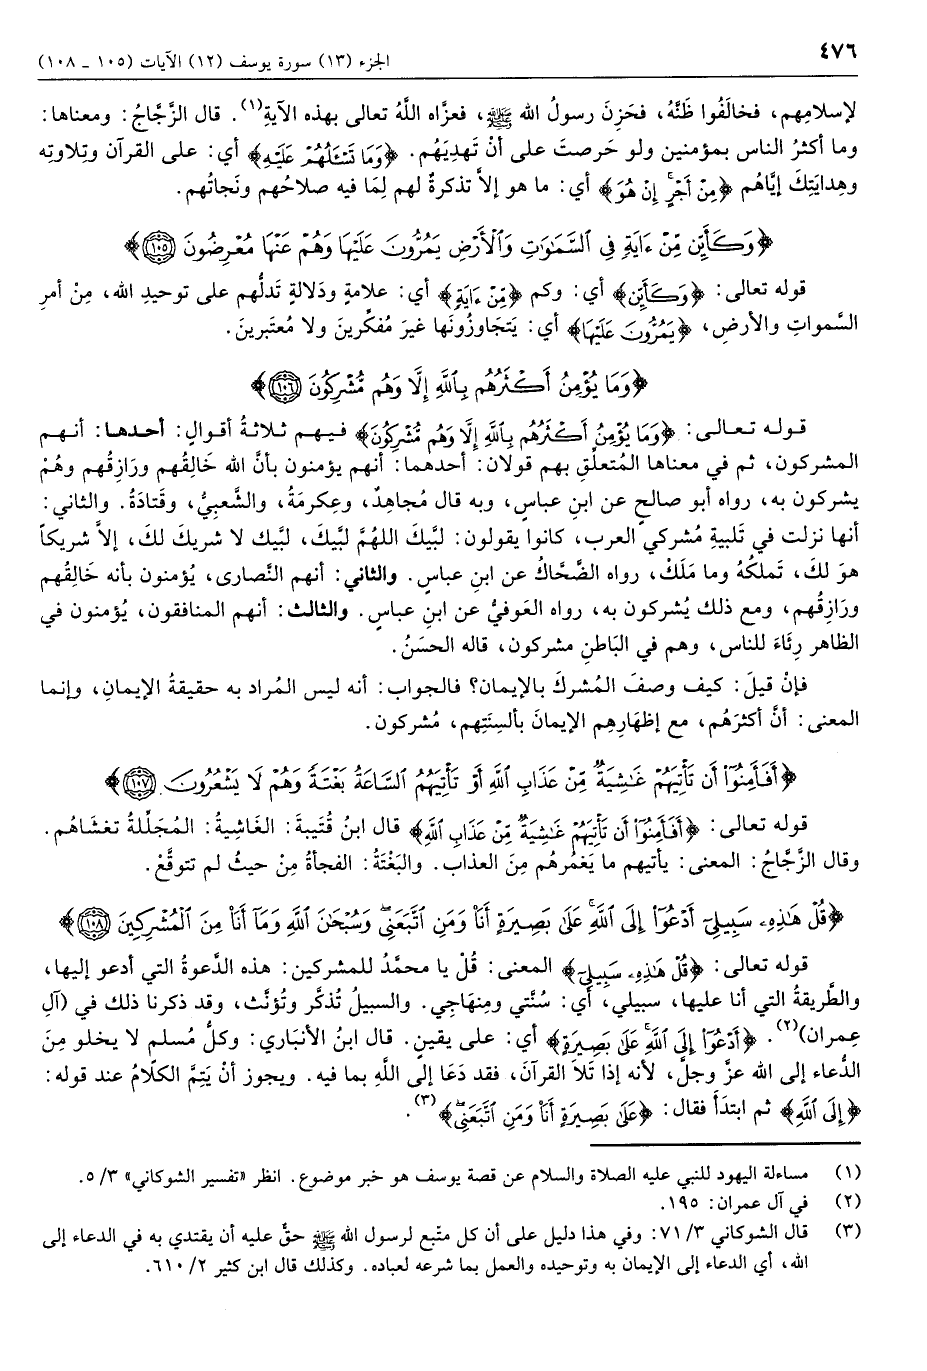 ٤٧٦
الجزء (١٣) سورة يوسف (١٢) الآيات (١٠٥ ـ ١٠٨)
لإسلامِهم، فخالَفُوا ظَنَّهُ، فحَزِنَ رسولُ الله ﷺ، فعزَّاه اللَّهُ تعالى بهذه الآيةِ(١). قال الزَّجَّاجُ: ومعناها:
وما أكثرُ الناس بمؤمنين ولو حَرصتَ على أنْ تَهدِيَهُم. ﴿وَمَا تَسْـَٔلُهُمْ عَلَيْهِ﴾ أي: على القرآن وتِلاوتِه
وهِدايَتِكَ إيَّاهُم ﴿مِنْ أَجْرٍ ۚ إِنْ هُوَ﴾ أي: ما هو إلاَّ تذكرةٌ لهم لِمَا فيه صلاحُهم ونَجاتُهم.
﴿وَكَأَيِّن مِّنْ ءَايَةٍ فِى السَّمَٰوَٰتِ وَٱلْأَرْضِ يَمُرُّونَ عَلَيْهَا وَهُمْ عَنْهَا مُعْرِضُونَ ١٠٥﴾
قوله تعالى: ﴿وَكَأَيِّن﴾ أي: وكم ﴿مِّنْ ءَايَةٍ﴾ أي: علامةٍ ودَلالةٍ تَدلُّهم على توحيدِ الله، مِنْ أمرِ
السَّمواتِ والأرضِ، ﴿يَمُرُّونَ عَلَيْهَا﴾ أي: يَتجاوزُونَها غيرَ مُفكِّرينَ ولا مُعتَبرينَ.
﴿وَمَا يُؤْمِنُ أَكْثَرُهُم بِٱللَّهِ إِلَّا وَهُم مُّشْرِكُونَ ١٠٦﴾
قوله تعالى: ﴿وَمَا يُؤْمِنُ أَكْثَرُهُم بِٱللَّهِ إِلَّا وَهُم مُّشْرِكُونَ﴾ فيهم ثلاثةُ أقوالٍ: أحدها: أنهم
المشركون، ثم في معناها المُتعلِّقِ بهم قولان: أحدهما: أنهم يؤمنون بأنَّ الله خَالِقُهم ورَازِقُهم وهُمْ
يشركون به، رواه أبو صالحٍ عن ابنِ عباسٍ، وبه قال مُجاهِدٌ، وعِكرمَةُ، والشَّعبِيُّ، وقَتادَةُ. والثاني:
أنها نزلت في تَلبيةِ مُشركي العرب، كانوا يقولون: لبَّيكَ اللهُمَّ لبَّيكَ، لبَّيك لا شريكَ لكَ، إلاَّ شريكاً
هوَ لكَ، تَملكُهُ وما مَلَكْ، رواه الضَّحَّاكُ عن ابنِ عباسٍ. والثاني: أنهم النَّصارى، يُؤمنون بأنه خَالِقُهم
ورَازِقُهم، ومع ذلك يُشركون به، رواه العَوفيُّ عن ابنِ عباسٍ. والثالث: أنهم المنافقون، يُؤمنون في
الظاهرِ رِئَاءَ للناسِ، وهم في البَاطنِ مشركون، قاله الحسَنُ.
فإنْ قيلَ: كيف وصفَ المُشركَ بالإيمان؟ فالجواب: أنه ليس المُراد به حقيقةُ الإيمانِ، وإنما
المعنى: أنَّ أكثرَهُم، مع إظهَارِهِم الإيمانَ بألسِنَتِهم، مُشركون.
﴿أَفَأَمِنُوٓا۟ أَن تَأْتِيَهُمْ غَٰشِيَةٌ مِّنْ عَذَابِ ٱللَّهِ أَوْ تَأْتِيَهُمُ ٱلسَّاعَةُ بَغْتَةً وَهُمْ لَا يَشْعُرُونَ ١٠٧﴾
قوله تعالى: ﴿أَفَأَمِنُوٓا۟ أَن تَأْتِيَهُمْ غَٰشِيَةٌ مِّنْ عَذَابِ ٱللَّهِ﴾ قال ابنُ قُتَيبةَ: الغَاشيةُ: المُجَلِّلةُ تغشَاهُم.
وقال الزَّجَّاجُ: المعنى: يأتيهم ما يَغمُرهُم مِنَ العذاب. والبَغْتَةُ: الفجأةُ مِنْ حيثُ لم تتوقَّعْ.
﴿قُلْ هَٰذِهِۦ سَبِيلِىٓ أَدْعُوٓا۟ إِلَى ٱللَّهِ ۚ عَلَىٰ بَصِيرَةٍ أَنَا۠ وَمَنِ ٱتَّبَعَنِى ۖ وَسُبْحَٰنَ ٱللَّهِ وَمَآ أَنَا۠ مِنَ ٱلْمُشْرِكِينَ ١٠٨﴾
قوله تعالى: ﴿قُلْ هَٰذِهِۦ سَبِيلِىٓ﴾ المعنى: قُلْ يا محمَّدُ للمشركين: هذه الدَّعوةُ التي أدعو إليها،
والطَّريقةُ التي أنا عليها، سبيلي، أي: سُنَّتي ومِنهاجِي. والسبيلُ تُذكَّر وتُؤنَّث، وقد ذكرنا ذلك في (آلِ
عِمران)(٢). ﴿أَدْعُوٓا۟ إِلَى ٱللَّهِ ۚ عَلَىٰ بَصِيرَةٍ﴾ أي: على يقينٍ. قال ابنُ الأنباري: وكلُّ مُسلم لا يخلو مِنَ
الدُّعاء إلى الله عزَّ وجلَّ، لأنه إذا تَلاَ القرآن، فقد دَعَا إلى اللَّهِ بما فيه. ويجوز أنْ يَتِمَّ الكلَامُ عند قوله:
﴿إِلَى ٱللَّهِ﴾ ثم ابتدَأَ فقال: ﴿عَلَىٰ بَصِيرَةٍ أَنَا۠ وَمَنِ ٱتَّبَعَنِى ۖ﴾(٣).
(١) مساءلة اليهود للنبي عليه الصلاة والسلام عن قصة يوسف هو خبر موضوع. انظر «تفسير الشوكاني» ٥/٣.
(٢) في آل عمران: ١٩٥.
(٣) قال الشوكاني ٧١/٣: وفي هذا دليل على أن كل متّبع لرسول الله ﷺ حقٌّ عليه أن يقتدي به في الدعاء إلى
الله، أي الدعاء إلى الإيمان به وتوحيده والعمل بما شرعه لعباده. وكذلك قال ابن كثير ٦١٠/٢.